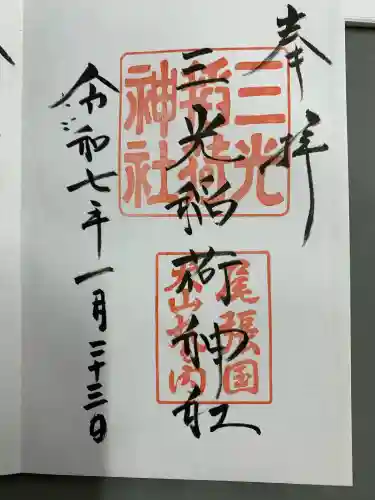 奉拝
三光稲荷神社
三光稲荷神社
尾張国犬山城内
令和七年一月二十三日